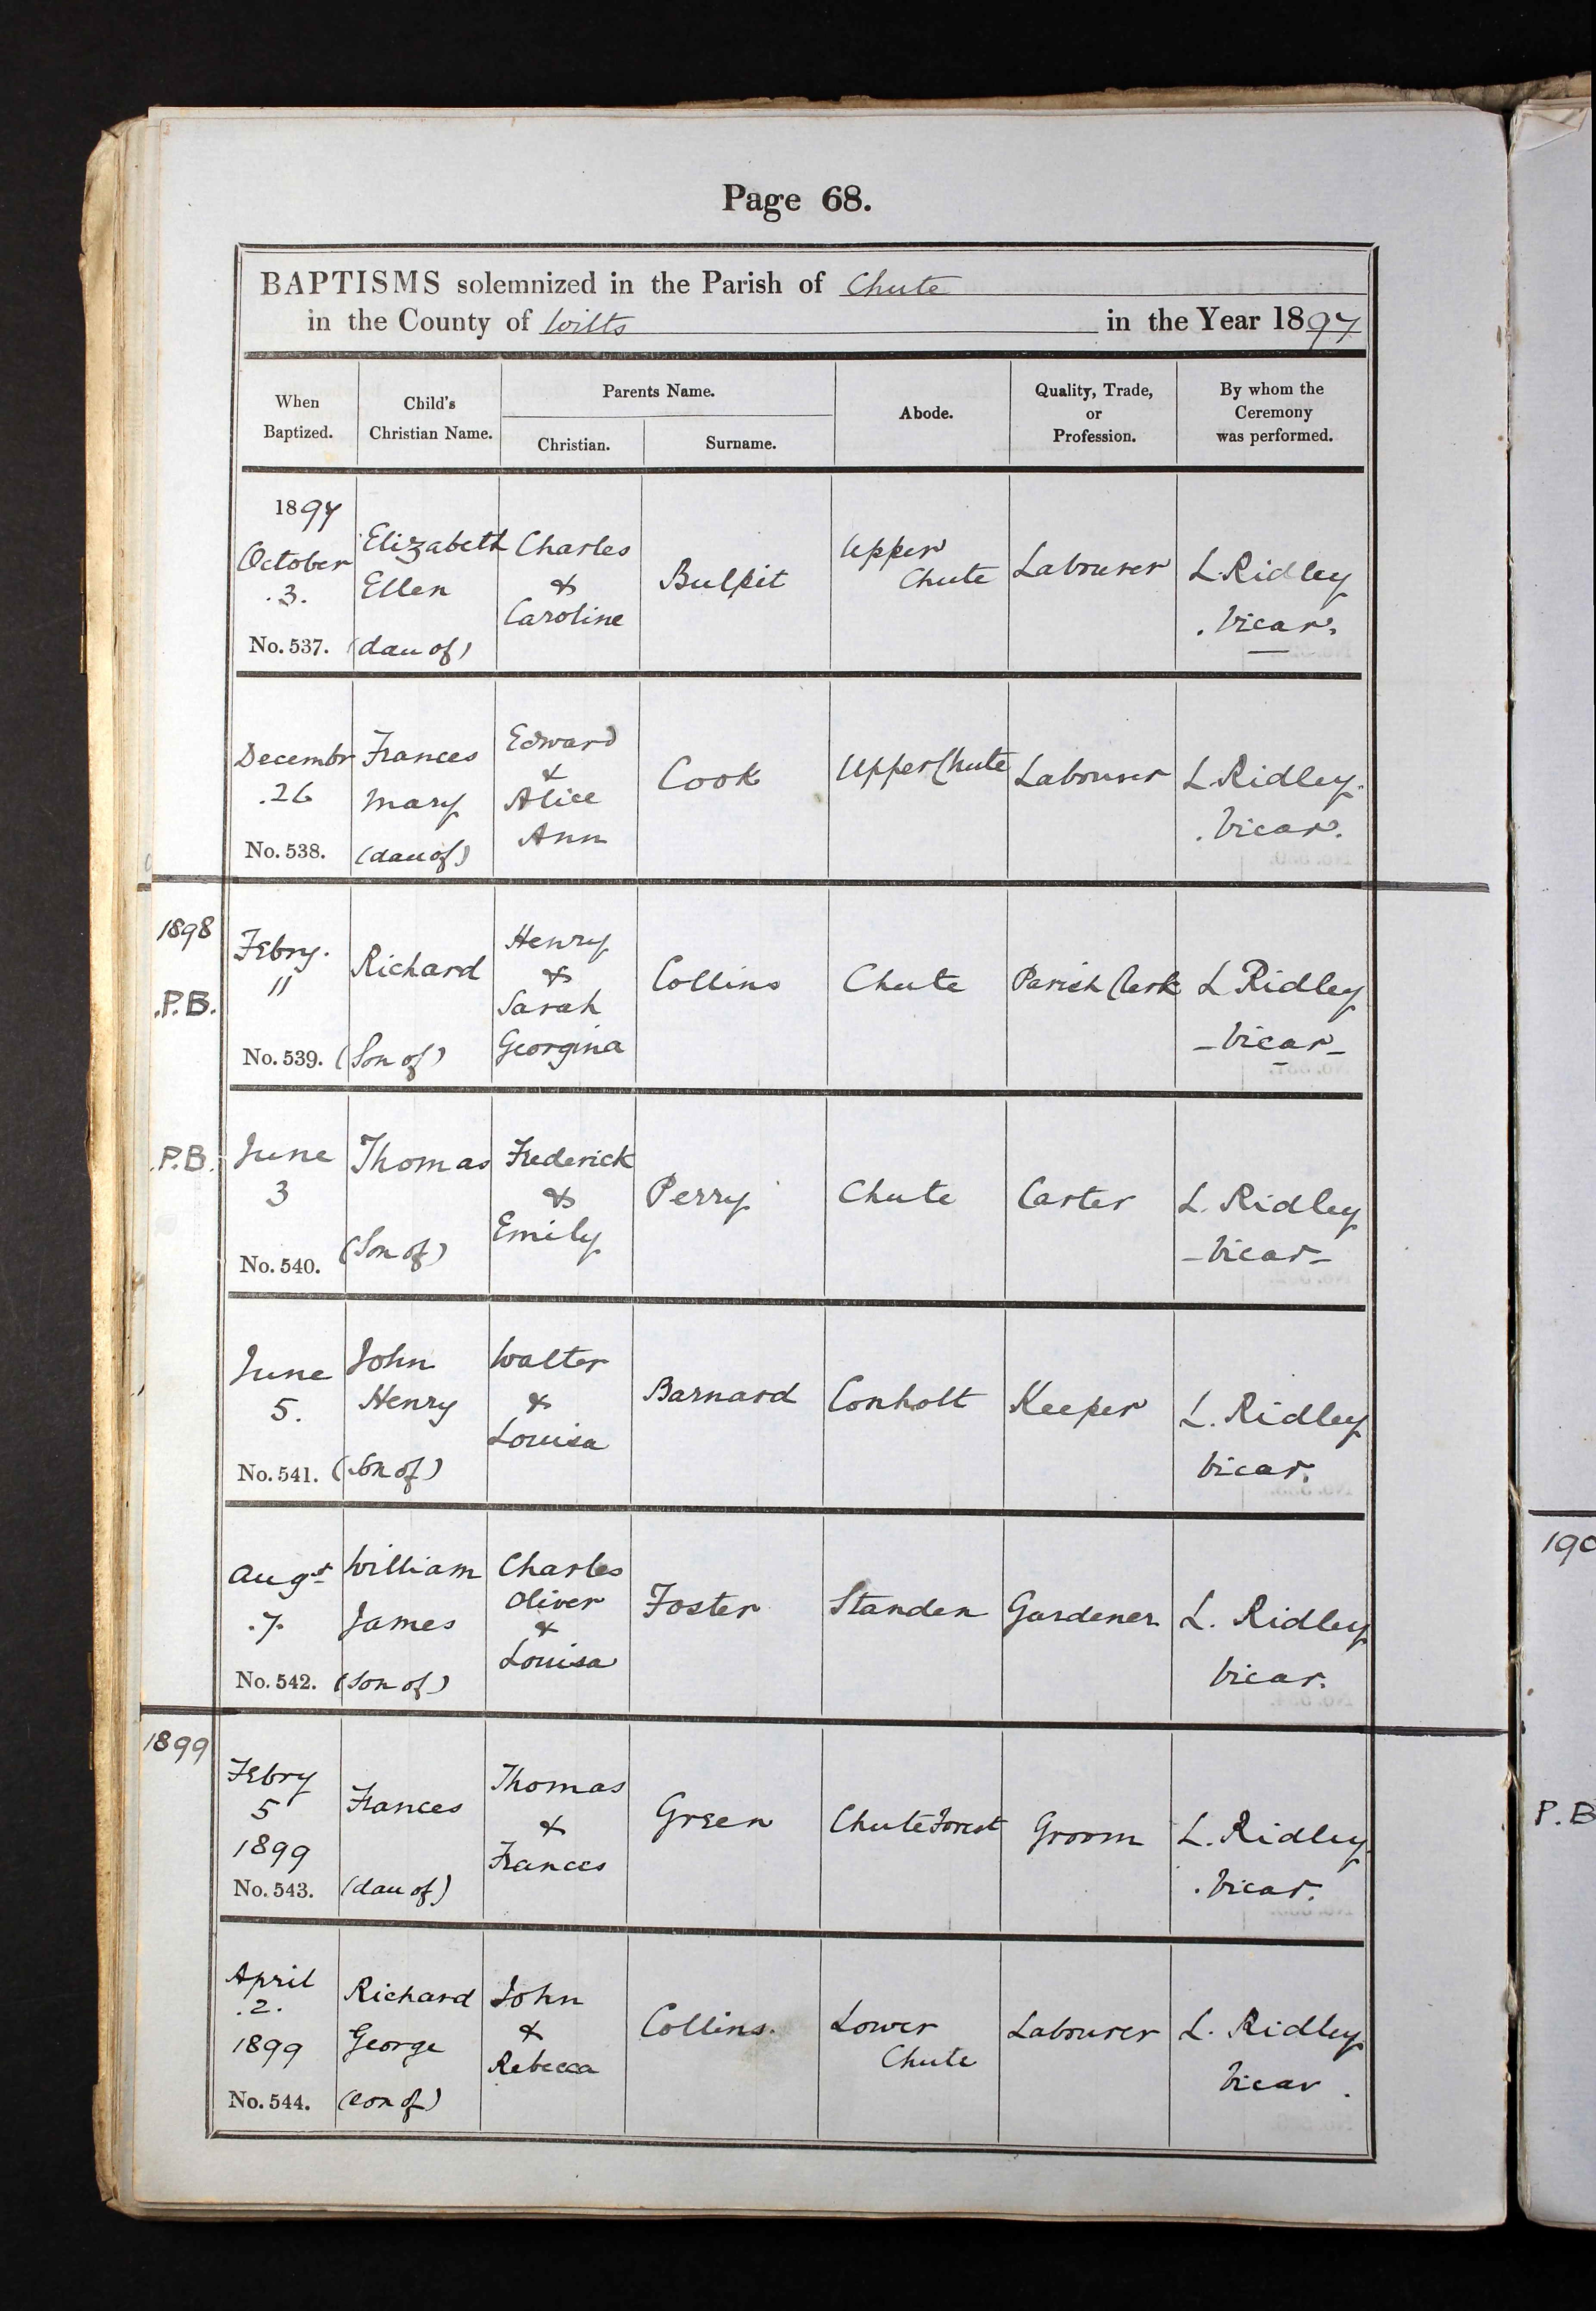 Page 68.
BAPTISMS solemnized in the Parish of Chute
in the County of Wilts in the Year 1897
When Baptized.
Child's Christian Name.
Parents Name.
Christian.
Surname.
Abode.
Quality, Trade, or Profession.
By whom the Ceremony was performed.
1897
October
.3.
No. 537.
Elizabeth
Ellen
(dau of)
Charles
&
Caroline
Bulpit
Upper
Chute
Labourer
L. Ridley
. Vicar.
Decembr
.26
No. 538.
Frances
Mary
(dau of)
Edward
&
Alice
Ann
Cook
Upper Chute
Labourer
L. Ridley.
. Vicar.
1898
P.B.
Febry.
11
No. 539.
Richard
(Son of)
Henry
&
Sarah
Georgina
Collins
Chute
Parish Clerk
L Ridley
- Vicar -
P.B.
June
3
No. 540.
Thomas
(Son of)
Frederick
&
Emily
Perry
Chute
Carter
L. Ridley
- Vicar -
June
5.
No. 541.
John
Henry
(Son of)
Walter
&
Louisa
Barnard
Conholt
Keeper
L. Ridley
Vicar.
Augst
.7.
No. 542.
William
James
(Son of)
Charles
Oliver
&
Louisa
Foster
Standen
Gardener
L. Ridley
Vicar.
1899
Febry
5
1899
No. 543.
Frances
(dau of)
Thomas
&
Frances
Green
Chute Forest
Groom
L. Ridley
. Vicar.
April
.2.
1899
No. 544.
Richard
George
(son of)
John
&
Rebecca
Collins.
Lower
Chute
Labourer
L. Ridley
Vicar .
190
P.B